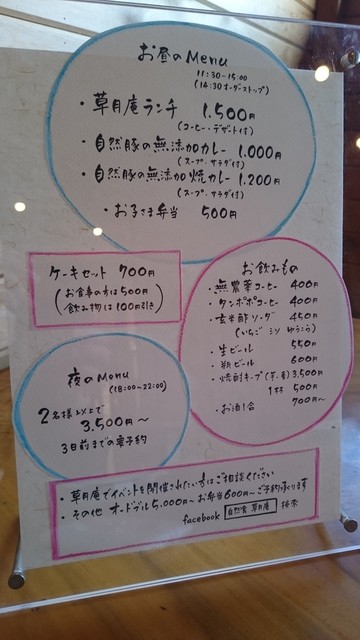 お昼のMenu
11:30-15:00
(14:30 オーダーストップ)
・草月庵ランチ 1,500円
(コーヒー・デザート付)
・自然豚の無添加カレー 1,000円
(スープ・サラダ付)
・自然豚の無添加焼カレー 1,200円
(スープ・サラダ付)
・お子さま弁当 500円
ケーキセット 700円
(お食事の方は500円
飲み物は100円引き)
お飲みもの
・無農薬コーヒー 400円
・タンポポコーヒー 400円
・玄米酢ソーダ 450円
(いちご シソ ゆうこう)
・生ビール 550円
・瓶ビール 600円
・焼酎キープ(芋・麦) 3,500円
1杯 500円
・お酒1合 700円〜
夜のMenu
(18:00〜22:00)
2名様より上で
3,500円〜
3日前までの要予約
・草月庵でイベントを開催されたい方はご相談ください
・その他 オードブル5,000円〜 お弁当600円〜ご予約承ります
facebook 自然食 草月庵 検索